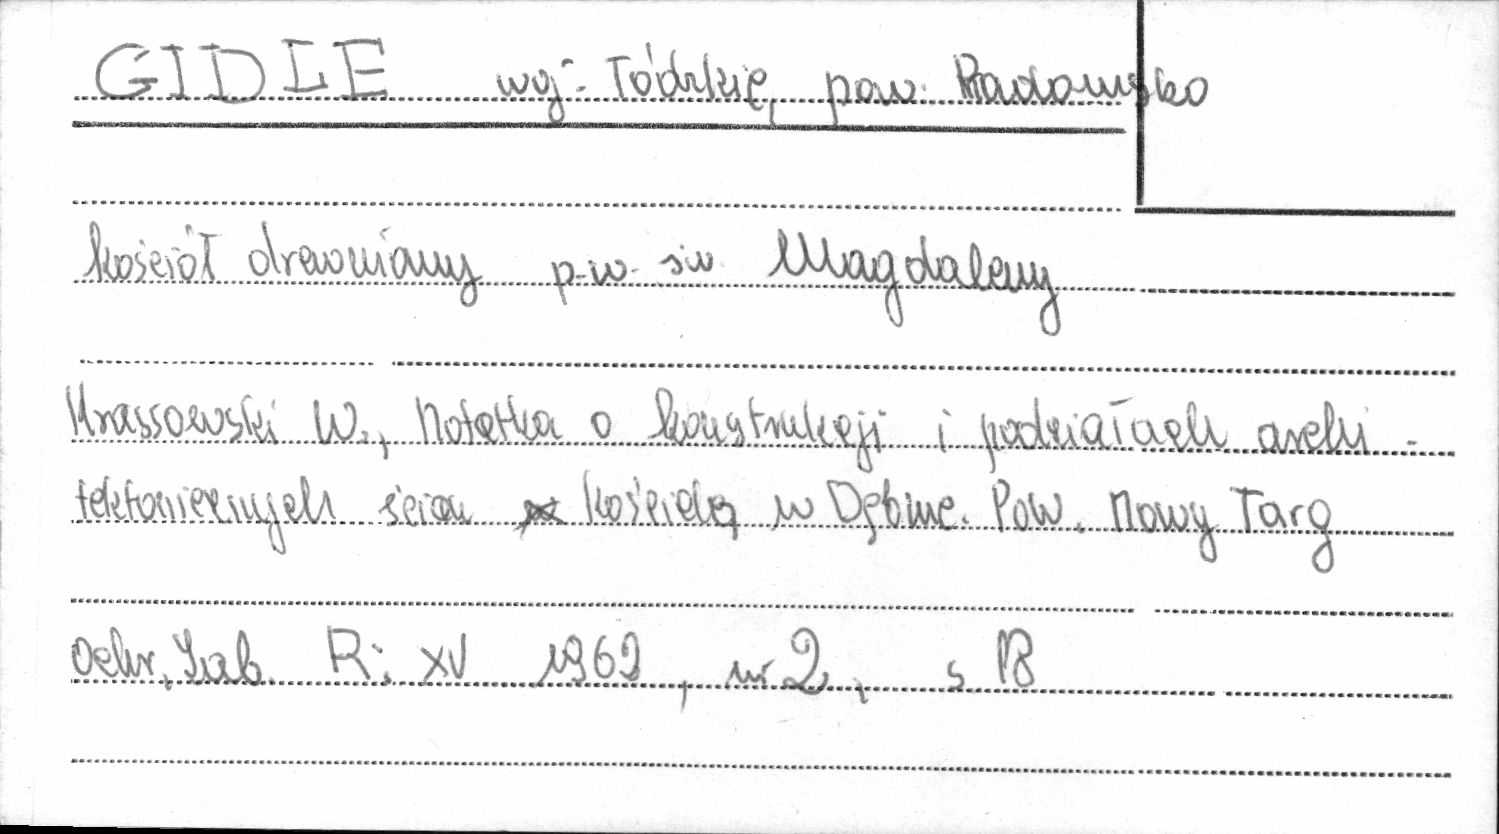 GIDLE woj. Łódzkie, pow. Radomsko
kościół drewniany p.w. św. Magdaleny
Krassowski W., Notatka o konstrukcji i podziałach archi-
tektonicznych ścian kościoła w Dębnie. Pow. Nowy Targ
Ochr. Zab. R: XV 1962, nr 2, s 18